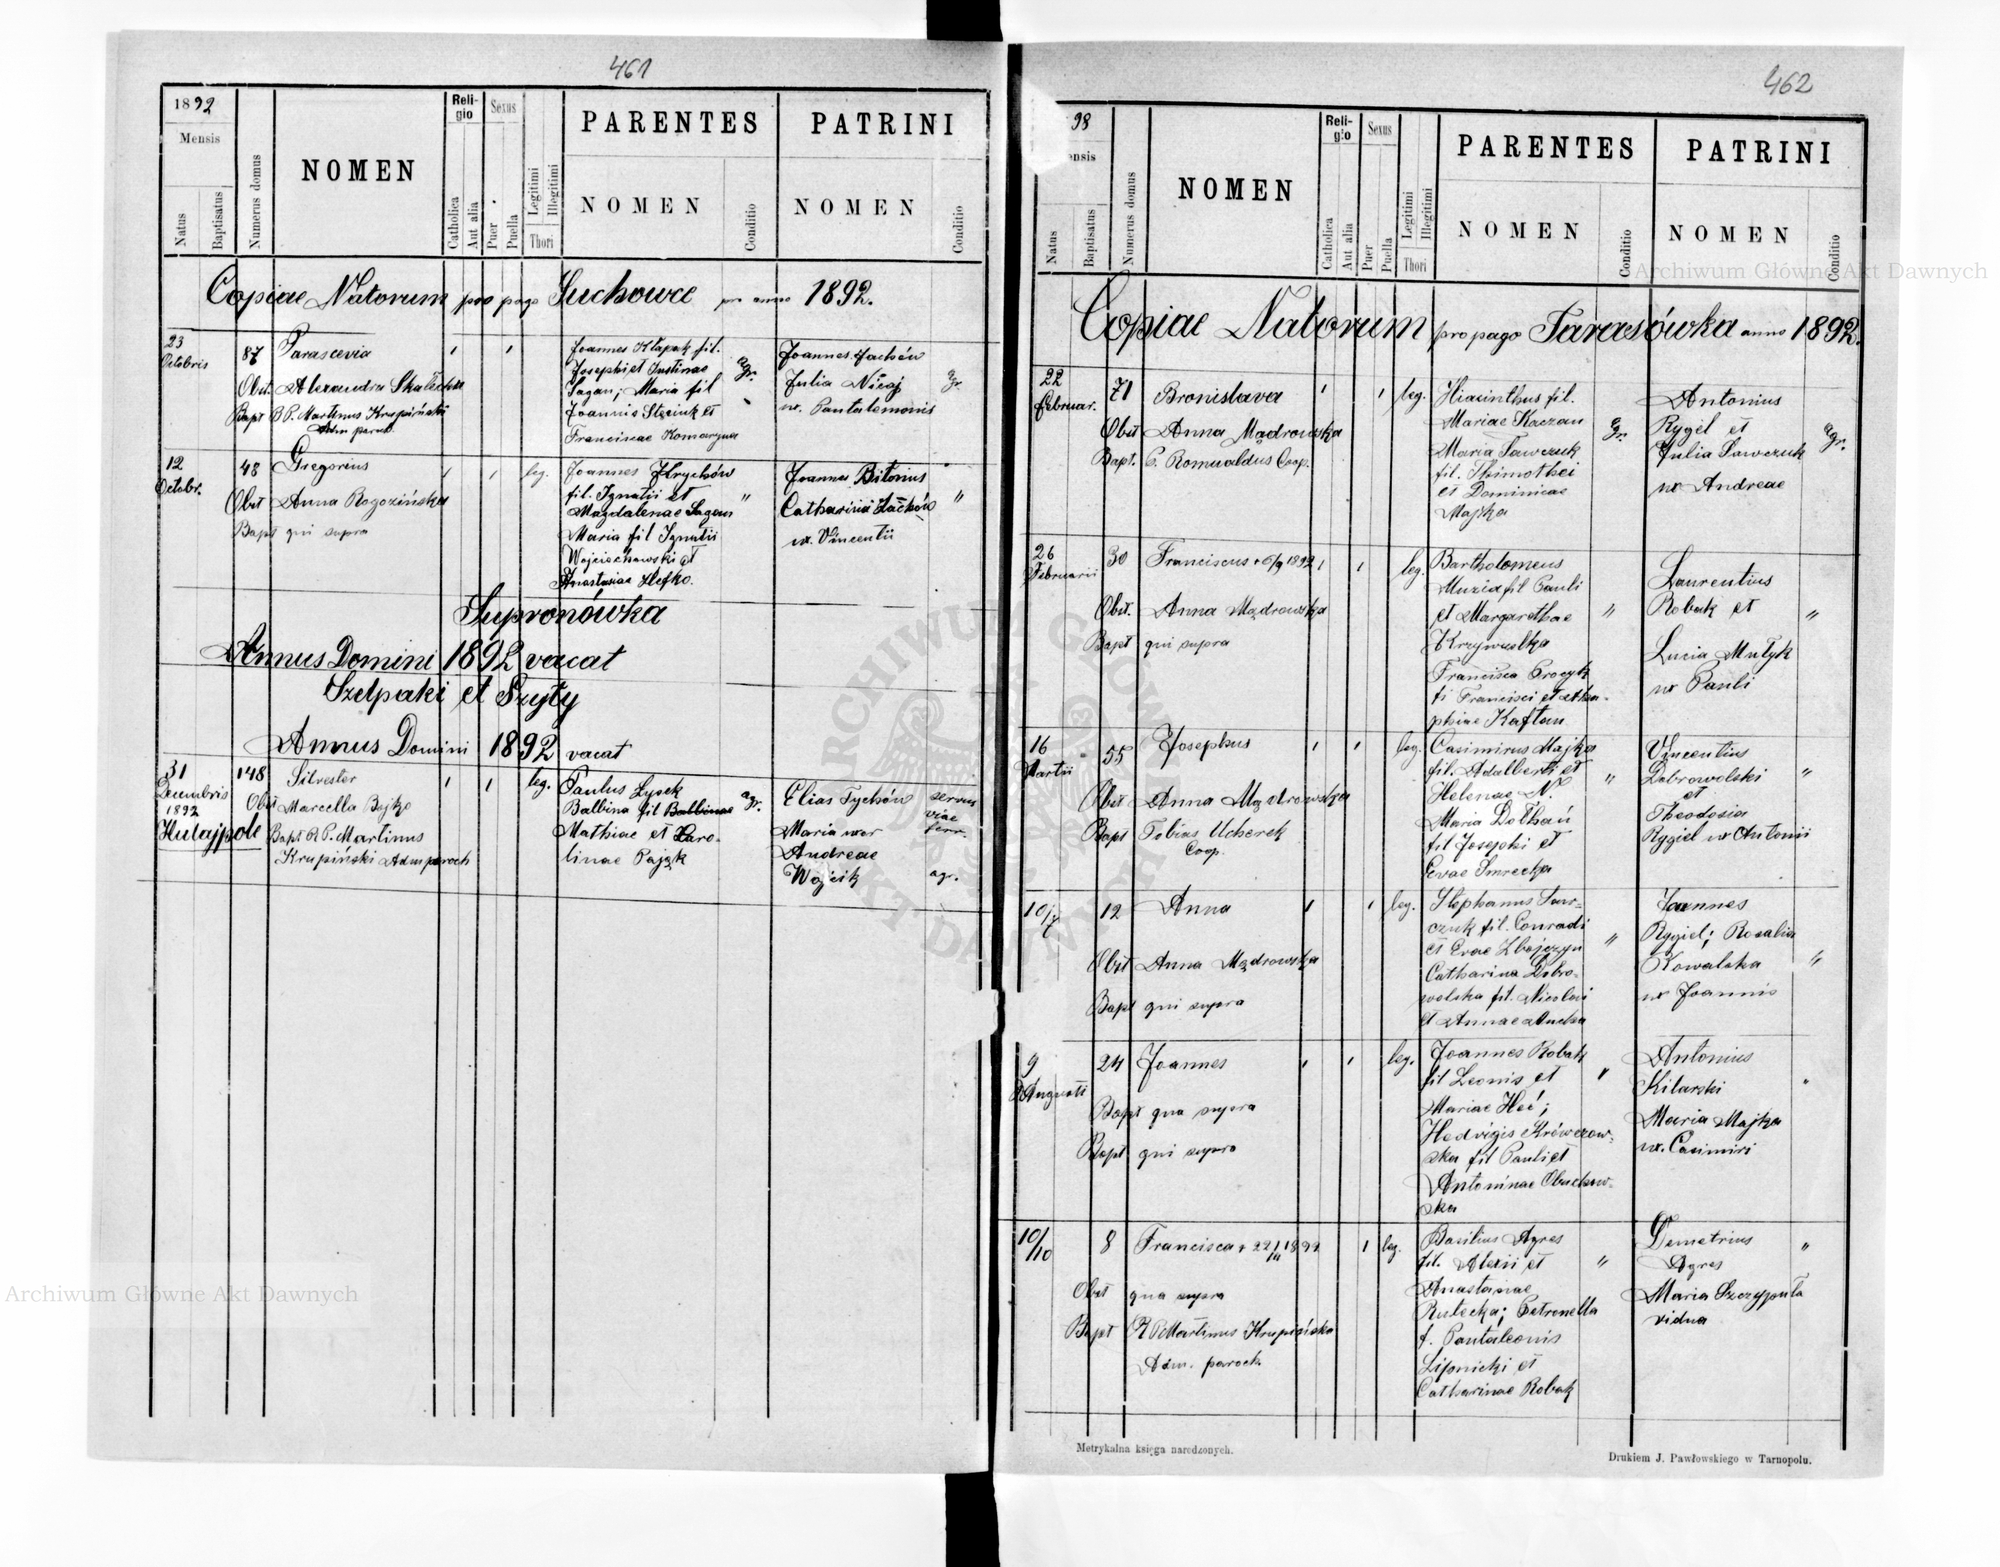 461
1892
Mensis
Natus
Baptisatus
Numerus domus
NOMEN
Religio
Catholica
Aut alia
Sexus
Puer
Puella
Legitimi
Illegitimi
Thori
PARENTES
NOMEN
Conditio
PATRINI
NOMEN
Conditio
Copiae Natorum pro pago Suchowce pro anno 1892.
23 Octobris
87
Parascevia
Obst. Alexandra Skalecka
Bapt R P. Martinus Krupiński
Adm paroch.
Joannes Kłapak fil.
Josephi et Justinae
Sagan; Maria fil
Joannis Stęciuk et
Franciscae Komarzna
agr.
Joannes Jachów
Julia Nicaj
ux. Pantalemonis
gr.
12 Octobr.
48
Gregorius
Obst Anna Rogozińska
Bapt qui supra
leg.
Joannes Hrychów
fil. Ignatii et
Magdalenae Sagan
Maria fil Ignatii
Wojciechowski et
Anastasiae Hefko.
"
Joannes Bitonius
Catharina Jachów
ux. Vincentii
"
Supronówka
Annus Domini 1892 vacat
Szelpaki et Szyły
Annus Domini 1892 vacat
31 Decembris 1892
Hulajpole
148
Silvester
Obst Marcella Bojko
Bapt R P. Martinus
Krupiński Adm paroch
leg.
Paulus Łysek
Balbina fil Balbinae
Mathiae et Karo-
linae Pająk
agr.
Elias Tychów
Maria uxor
Andreae
Wojcik
servus
viae
ferr.
agr.
462
98
ensis
Natus
Baptisatus
Numerus domus
NOMEN
Religio
Catholica
Aut alia
Sexus
Puer
Puella
Legitimi
Illegitimi
Thori
PARENTES
NOMEN
Conditio
PATRINI
NOMEN
Conditio
Copiae Natorum pro pago Tarasówka anno 1892.
22 Februar.
71
Bronislava
Obst Anna Mądrowska
Bapt. P. Romualdus Coop.
leg.
Hiacinthus fil.
Mariae Kaczan
Maria Sawczuk
fil. Thimothei
et Dominicae
Majka
agr.
Antonius
Rygel et
Julia Sawczuk
ux Andreae
agr.
26 Februarii
30
Franciscus + 6/9 1892
Obst. Anna Mądrowska
Bapt qui supra
leg.
Bartholomeus
Muzia fil Pauli
et Margarethae
Krzywulka
Francisca Procyk
fi Francisci et Aga-
phiae Kaftan
"
Laurentius
Robak et
Lucia Mułyk
ux Pauli
"
16 Martii
55
Josephus
Obst Anna Mądrowska
Bapt Tobias Ucherek
Coop.
leg.
Casimirus Majka
fil. Adalberti et
Helenae N.
Maria Dołhań
fil Josephi et
Evae Smrecka
"
Vincentius
Dobrowolski
et
Theodosia
Rygiel ux Antonii
"
10/7
12
Anna
Obst Anna Mądrowska
Bapt qui supra
leg.
Stephanus Saw-
czuk fil. Conradi
et Evae Zbojczyn
Catharina Dobro-
wolska fil. Nicolai
et Annae
"
Joannes
Rygiel; Rosalia
Kowalska
ux Joannis
"
9 Augusti
24
Joannes
Bapt qua supra
Bapt qui supra
leg.
Joannes Robak
fil Leonis et
Mariae Heć;
Hedvigis Krówczow-
ska fil Pauli et
Antoninae Obuchow-
ska
"
Antonius
Kilarski
Maria Majka
ux. Casimiri
"
10/10
8
Francisca + 22/11 1892
Obst qua supra
Bapt R P Martinus Krupiński
Adm. paroch.
leg.
Basilius Agres
fil. Alexii et
Anastasiae
Rutecka; Petronella
f. Pantaleonis
Lipnicki et
Catharinae Robak
"
Demetrius
Agres
Maria Szczypuła
vidua
"
Metrykalna księga narodzonych.
Drukiem J. Pawłowskiego w Tarnopolu.
Archiwum Główne Akt Dawnych
Archiwum Główne Akt Dawnych
ARCHIWUM GŁÓWNE AKT DAWNYCH